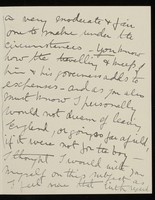 a very moderate & fair
one to make under the
circumstances - You know
how the travelling & keep of
him & his governess adds to
expenses - and as you also
must know I personally
would not dream of leaving
England, or going so far afield,
if it were not for the boy -
I thought I would write you
myself on this subject as
I feel sure that